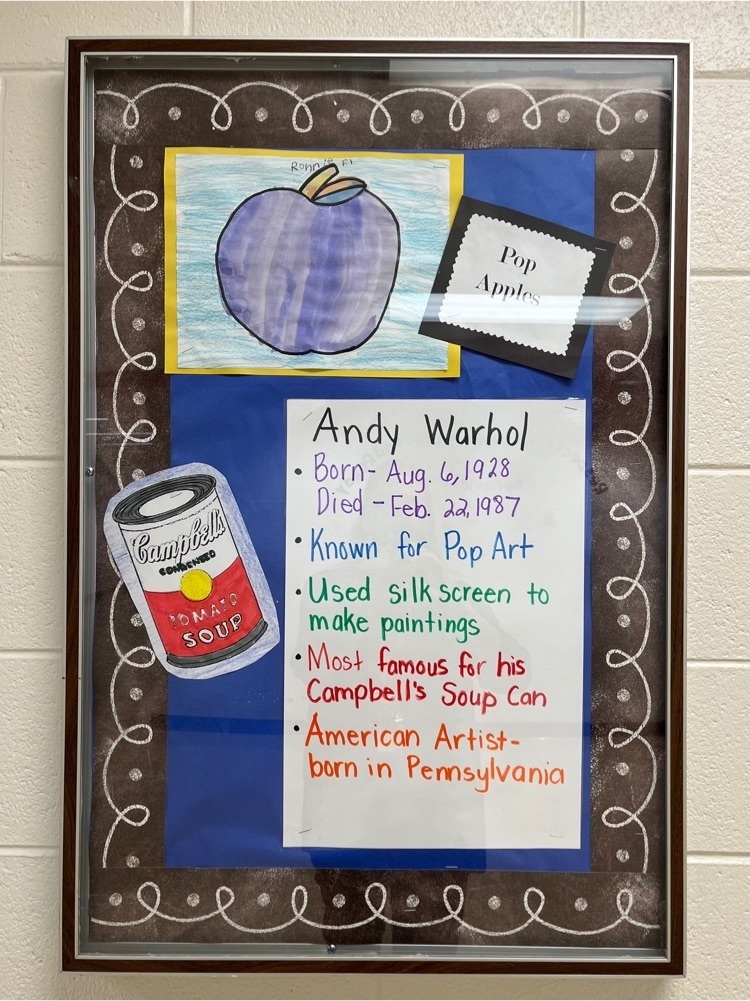 Ronnie Fi
Pop
Apples
Andy Warhol
• Born- Aug. 6, 1928
Died - Feb. 22, 1987
• Known for Pop Art
• Used silk screen to
make paintings
• Most famous for his
Campbell's Soup Can
• American Artist-
born in Pennsylvania
Campbell's
CONDENSED
TOMATO
SOUP